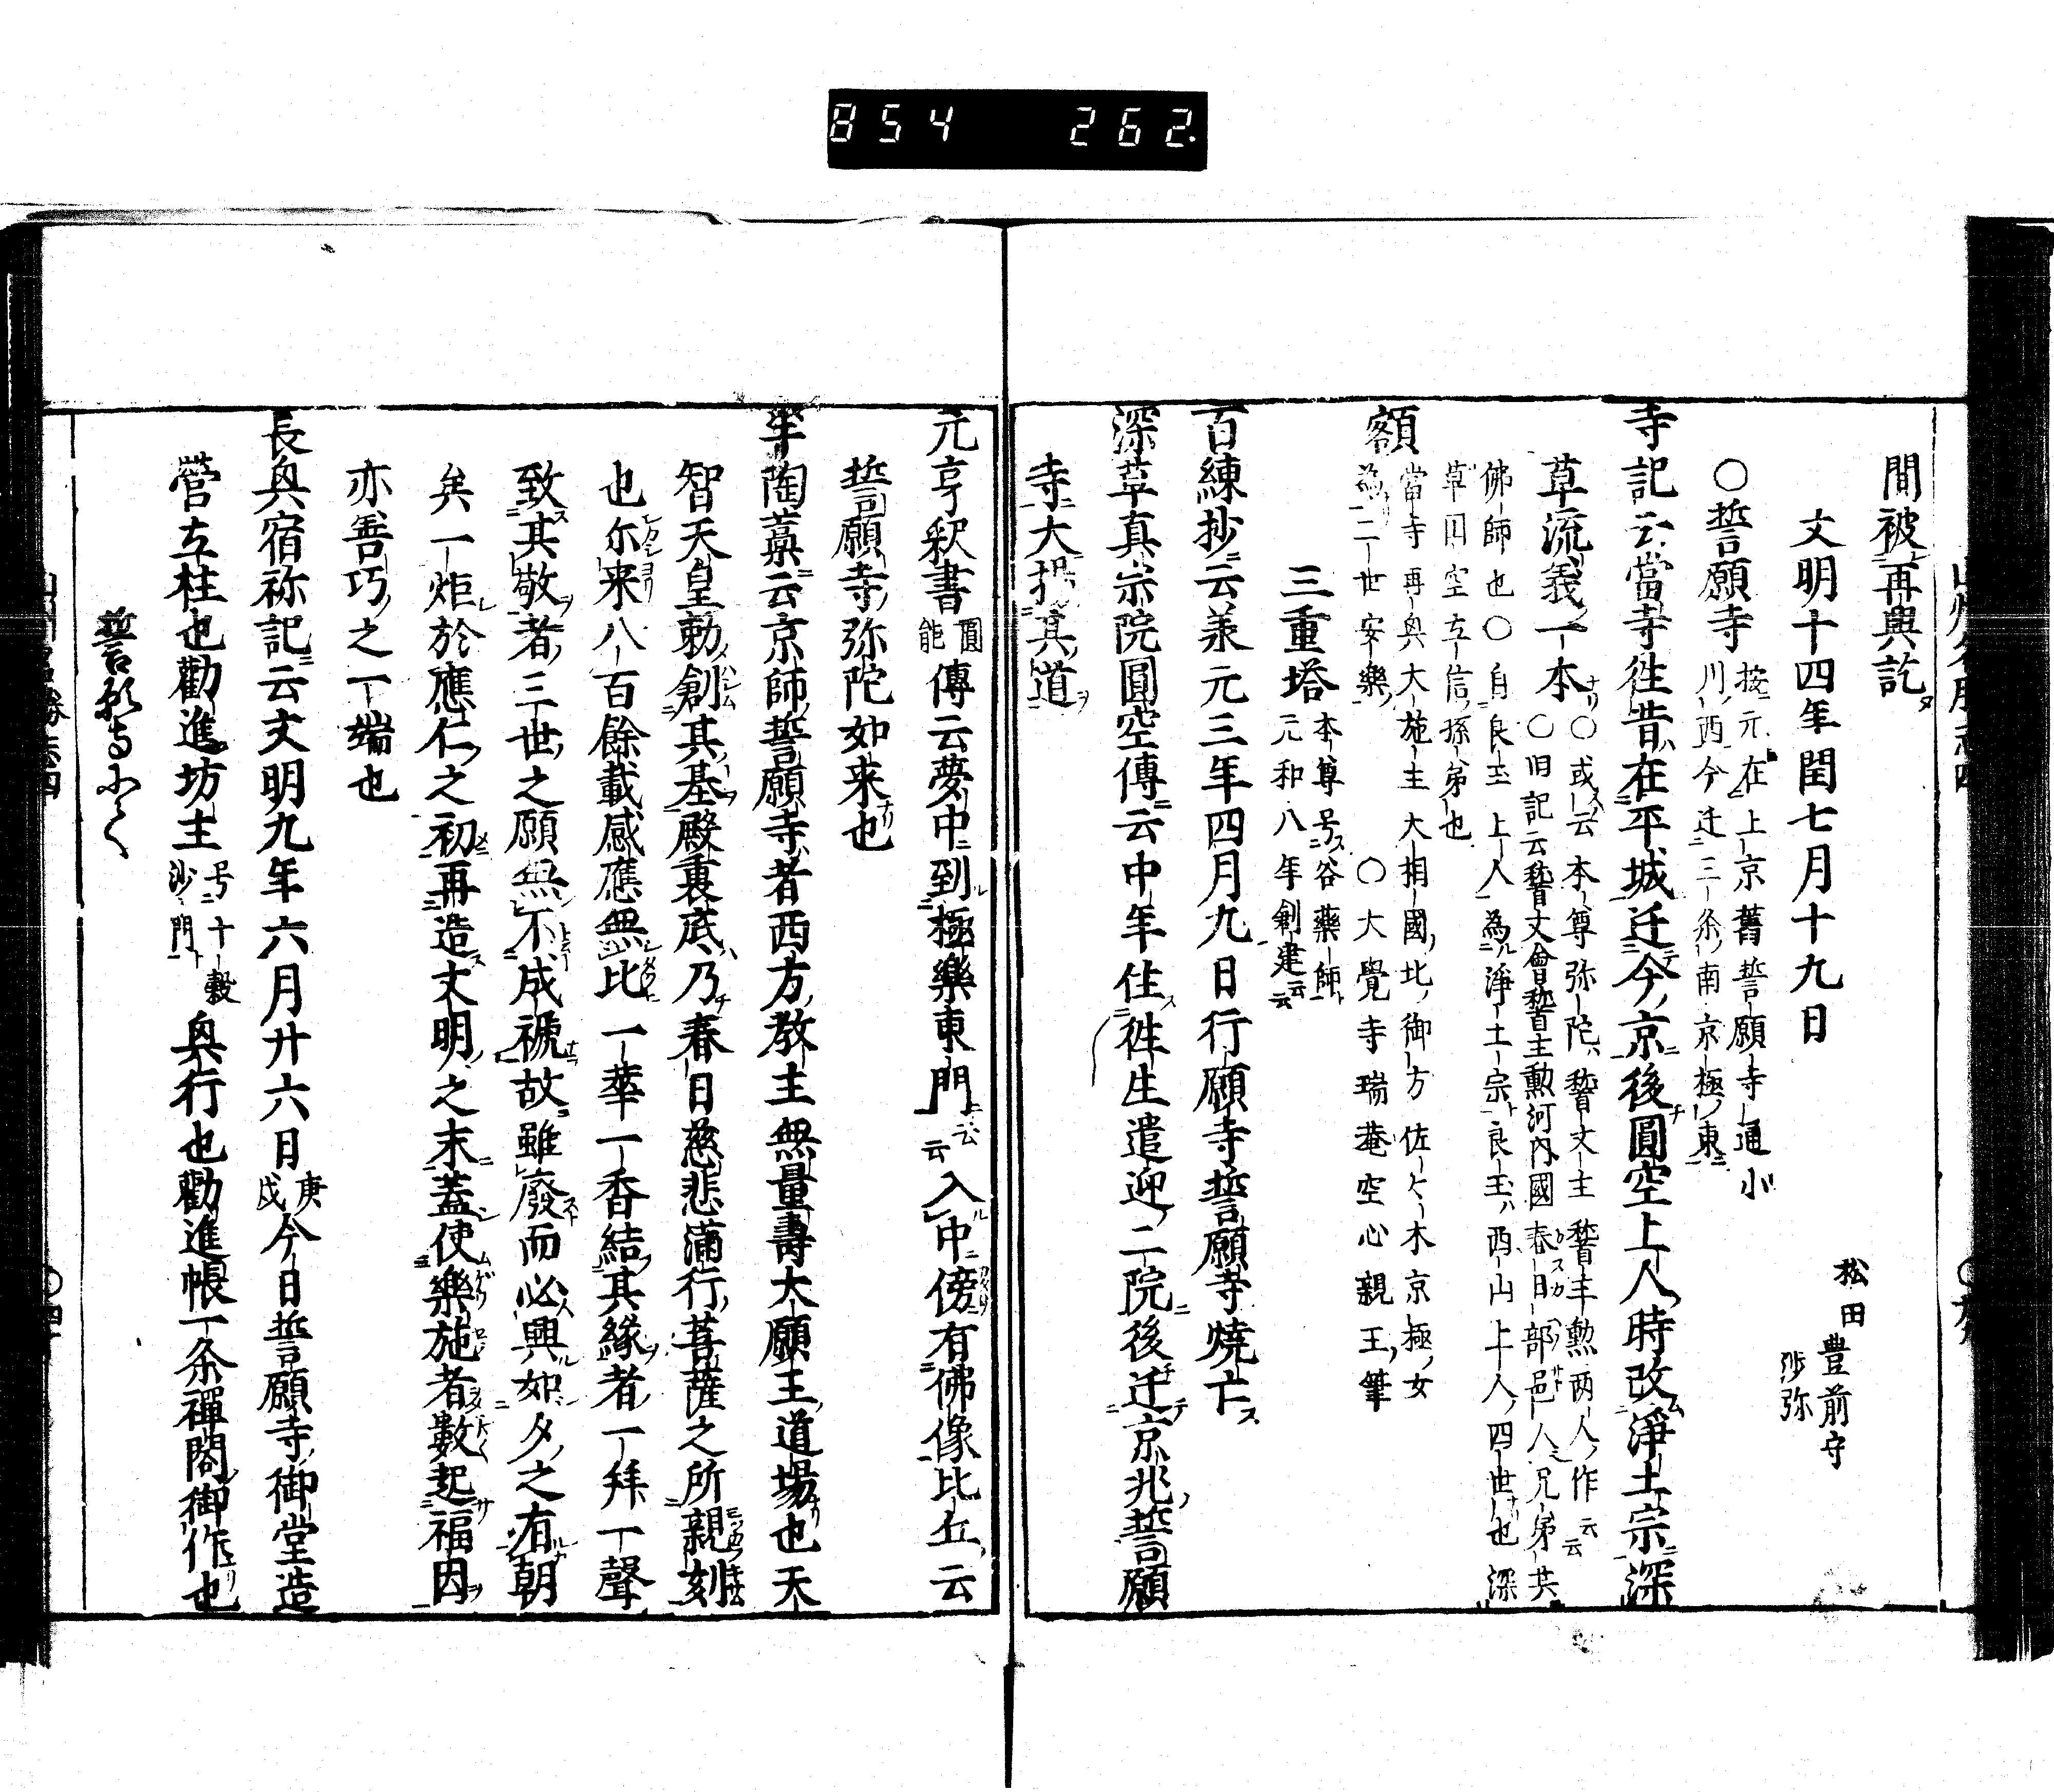 854 262
間被再興訖
文明十四年閏七月十九日
松田豊前守
沙弥
○誓願寺
按元在上京舊誓願寺通小
川西今迁三条南京極東
寺記云當寺徃昔在平城迁今京後圓空上人時改淨土宗深
草流義一本
○或云本尊弥陀誓文主誓主勲両人作云云
○旧記云誓文會誓主勲河内國春日部邑人兄弟共
佛師也○自良玉上人為淨土宗良玉西山上人四世也深
草円空立信孫弟也
額
當寺再興大施主大相國北御方佐々木京極女
為二世安樂 ○大覺寺瑞菴空心親王筆
三重塔
本尊号谷藥師
元和八年創建云云
百練抄云羕元三年四月九日行願寺誓願寺燒亡
深草真宗院圓空傳云中年住徃生遣迎二院後迁京兆誓願
寺大揚其道
元亨釈書
圓能
傳云夢中到極樂東門云云入中傍有佛像比丘云
誓願寺弥陀如来也
半陶藁云京師誓願寺者西方教主無量壽大願王道場也天
智天皇勅創其基殿裏底乃春日慈悲滿行菩薩之所親刻
也尓来八百餘載感應無比一華一香結其緣者一拜一聲
致其敬者三世之願無不成褫故雖廢而必興如夕之有朝
矣一炬於應仁之初再造文明之末蓋使樂施者數起福因
亦善巧之一端也
長興宿祢記云文明九年六月廿六日
庚戌
今日誓願寺御堂造
營立柱也勸進坊主
号十穀
沙門
興行也勸進帳一条禪閤御作也